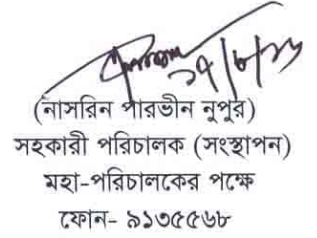 ১৭/৮/১৬
(নাসরিন পারভীন নুপুর)
সহকারী পরিচালক (সংস্থাপন)
মহা-পরিচালকের পক্ষে
ফোন- ৯১৩৫৫৬৮